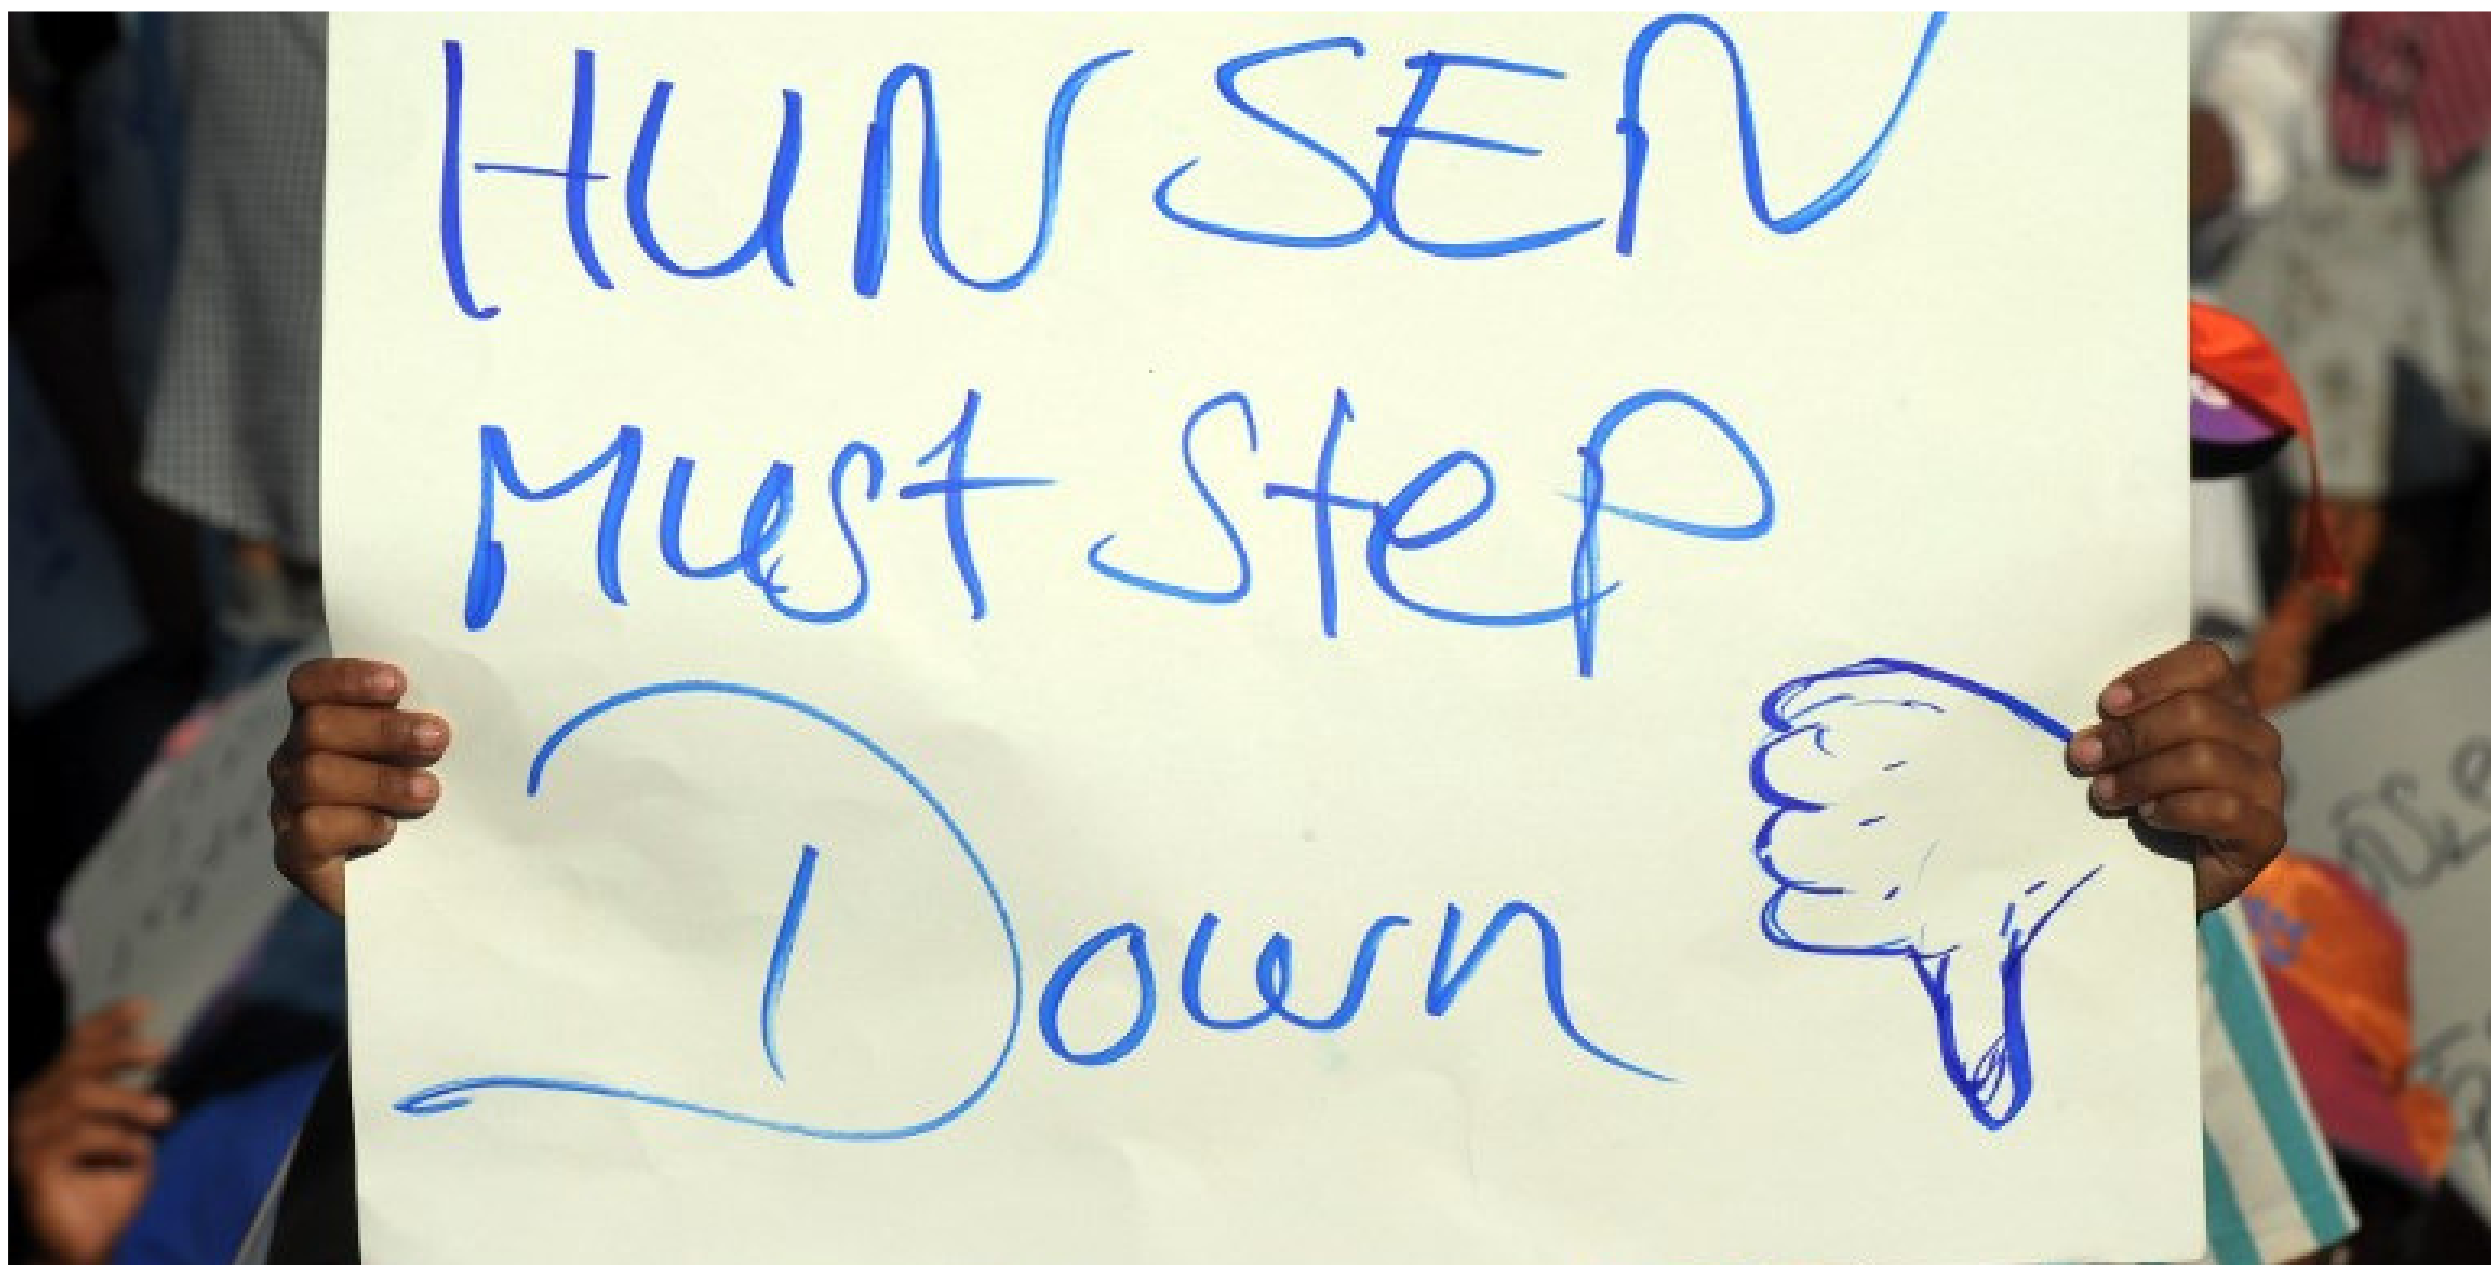 HUN SEN
Must Step
Down